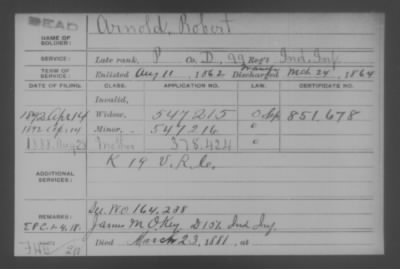 DEAD
NAME OF SOLDIER: Arnold, Robert
SERVICE: Late rank, P Co. D, 99 Reg't Ind. Inf.
TERM OF SERVICE: Enlisted Aug 11, 1862 Discharged Mch 24, 1864
DATE OF FILING. CLASS. APPLICATION NO. LAW. CERTIFICATE NO.
Invalid,
1892 Apr 14 Widow, 547215 851.678
1892 Apr 14 Minor, 547216
1888 Aug 23 Mother 378.424
ADDITIONAL SERVICES: K 19 V.R.C.
REMARKS: W.O. 164,238
James M. O.Key D 134 Ind Inf
Died March 23, 1881, at